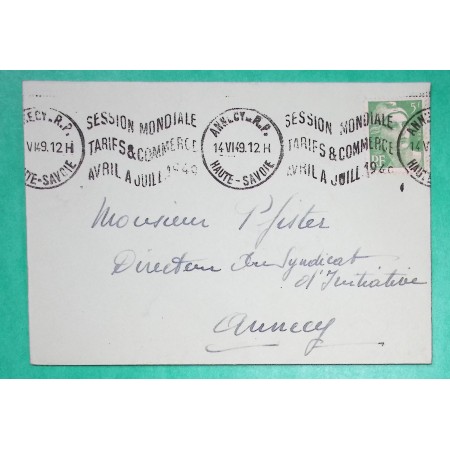 ANNECY-R.P.
14 VI49.12 H
HAUTE-SAVOIE
SESSION MONDIALE
TARIFS & COMMERCE
AVRIL A JUILL 1949
ANNECY-R.P.
14 VI49.12 H
HAUTE-SAVOIE
SESSION MONDIALE
TARIFS & COMMERCE
AVRIL A JUILL 1949
5F
RF
Monsieur Pfister
Directeur du Syndicat
d'Initiative
Annecy